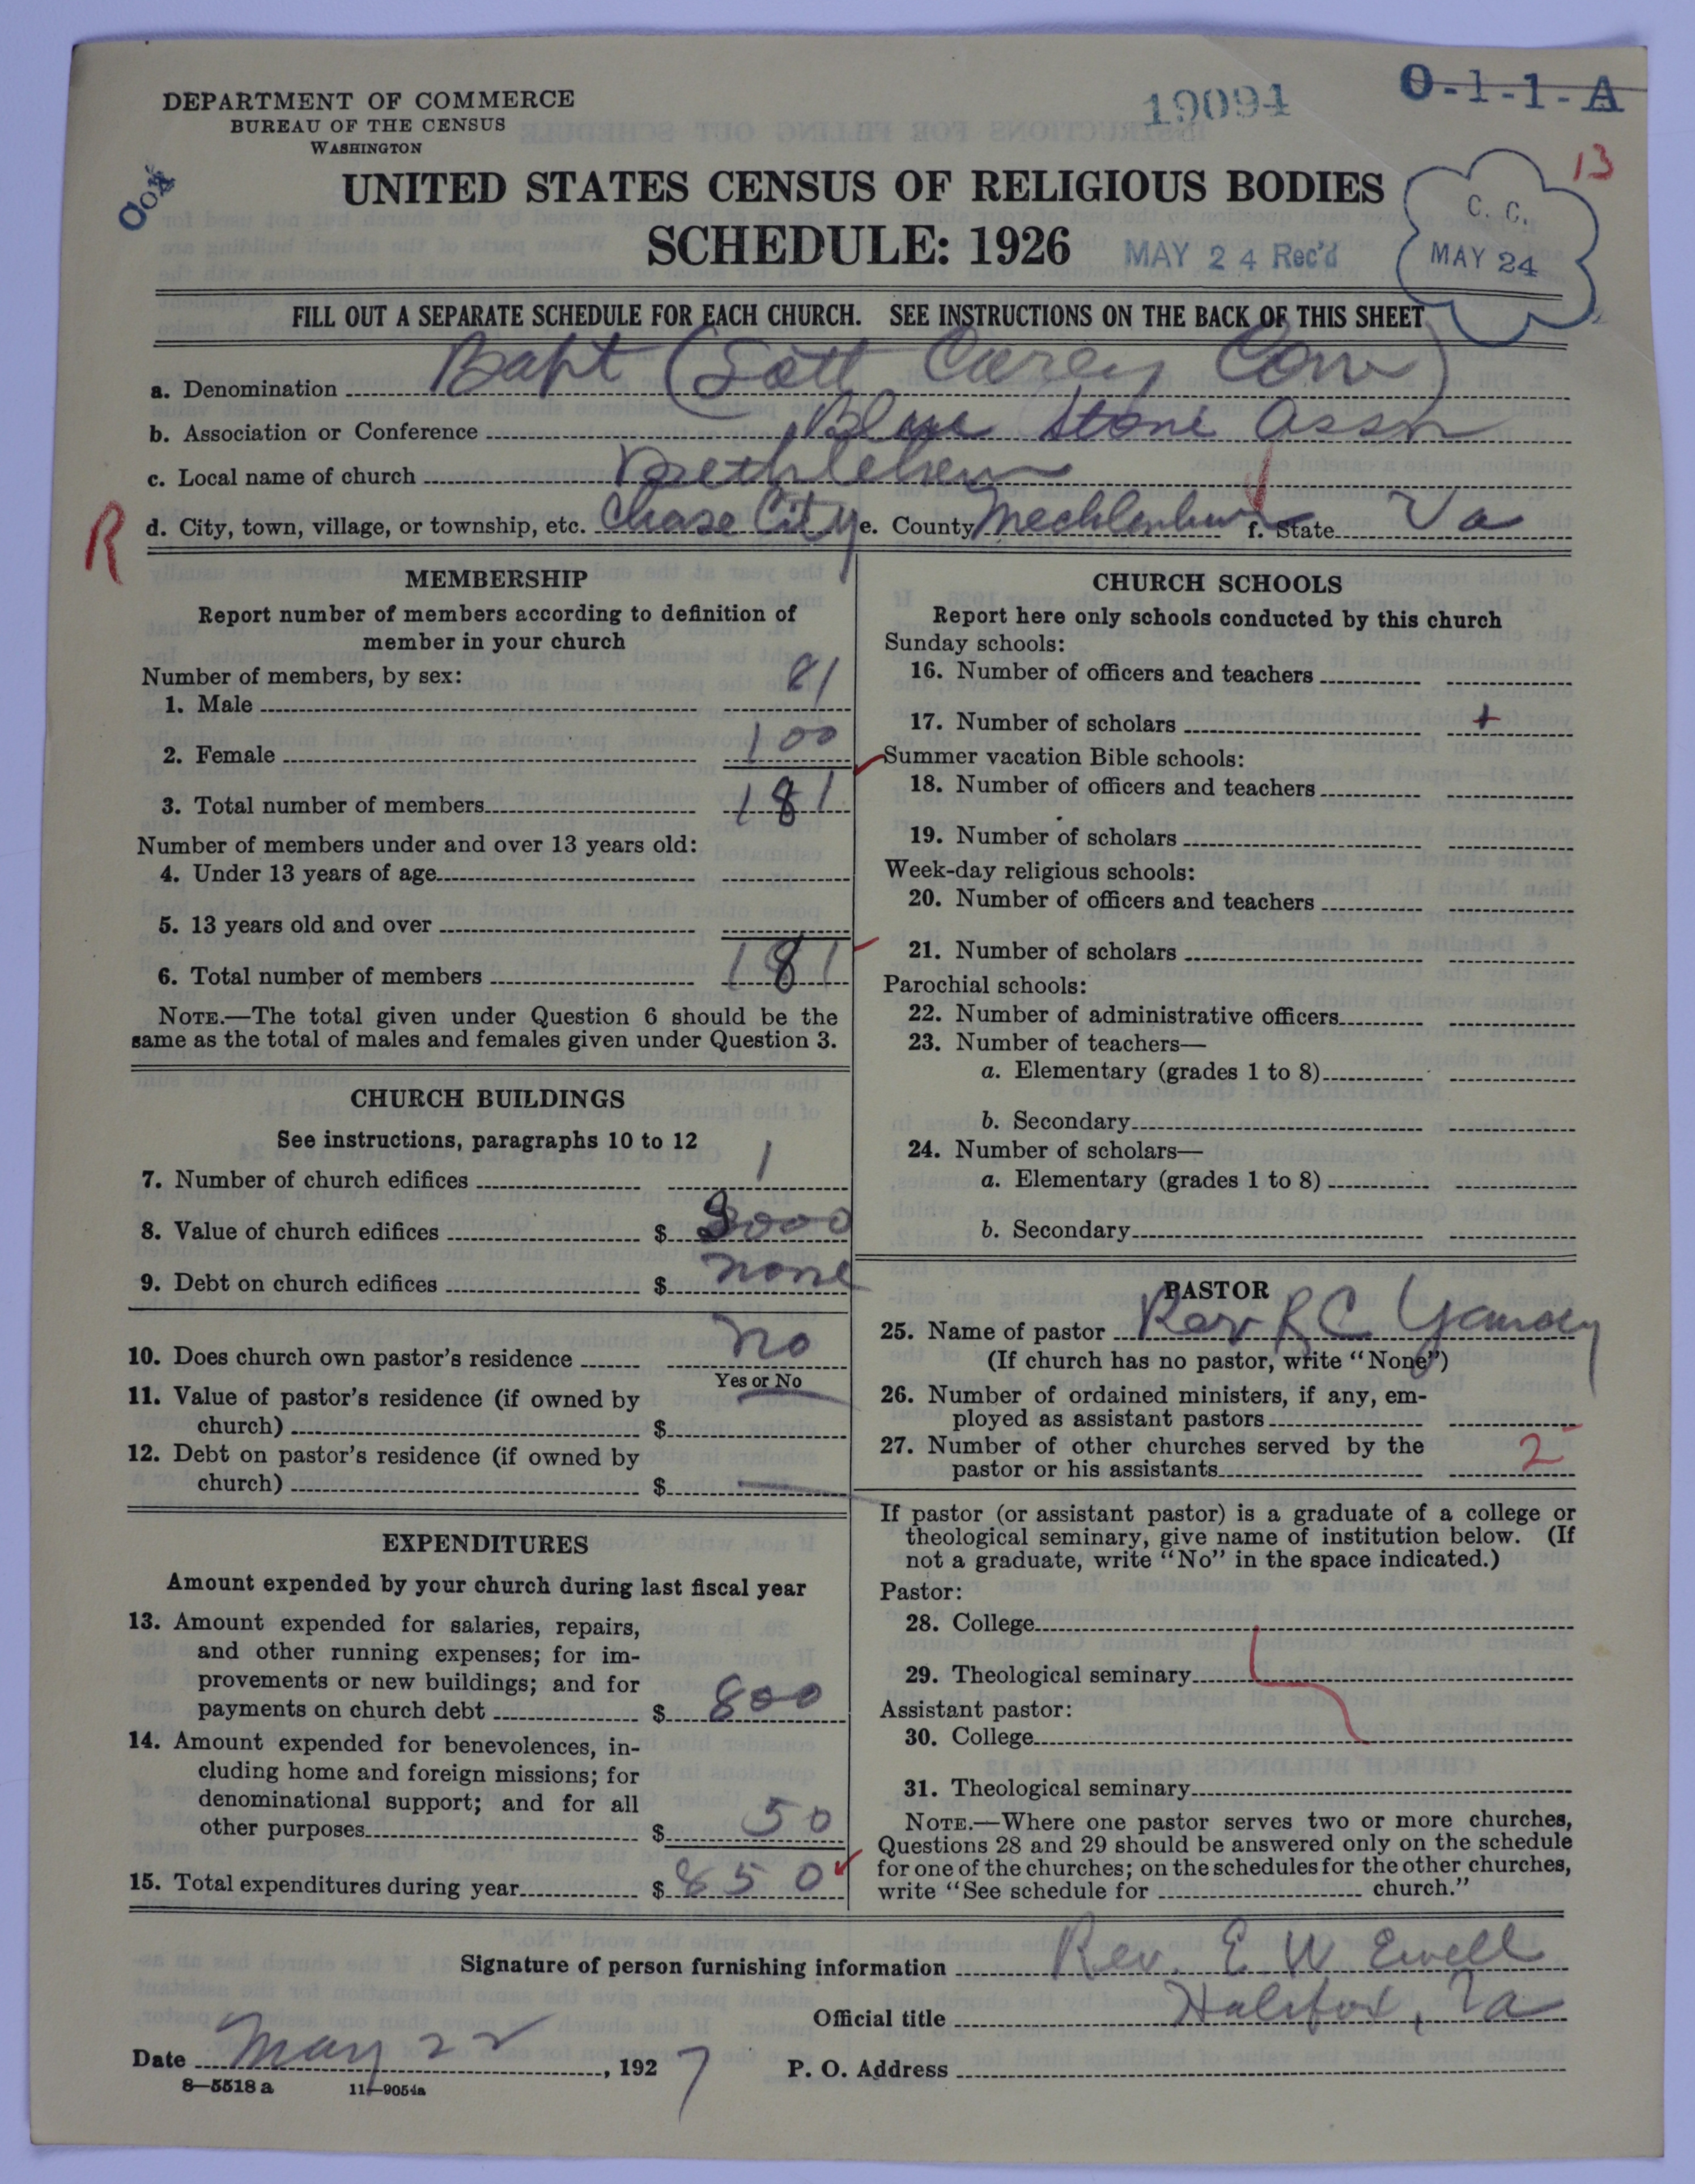 DEPARTMENT OF COMMERCE
BUREAU OF THE CENSUS
WASHINGTON
19094
O-1-1-A
13
UNITED STATES CENSUS OF RELIGIOUS BODIES
SCHEDULE: 1926
MAY 24 Rec'd
C. C.
MAY 24
FILL OUT A SEPARATE SCHEDULE FOR EACH CHURCH. SEE INSTRUCTIONS ON THE BACK OF THIS SHEET
a. Denomination Bapt (Lott Carey Con)
b. Association or Conference Blue Stone Assn
c. Local name of church Bethlehem
R
d. City, town, village, or township, etc. Chase City e. County Mecklenburg f. State Va
MEMBERSHIP
Report number of members according to definition of
member in your church
Number of members, by sex:
1. Male 81
2. Female 100
3. Total number of members 181
Number of members under and over 13 years old:
4. Under 13 years of age
5. 13 years old and over
6. Total number of members 181
NOTE.—The total given under Question 6 should be the
same as the total of males and females given under Question 3.
CHURCH BUILDINGS
See instructions, paragraphs 10 to 12
7. Number of church edifices 1
8. Value of church edifices $ 3000
9. Debt on church edifices $ none
10. Does church own pastor's residence No
Yes or No
11. Value of pastor's residence (if owned by
church) $
12. Debt on pastor's residence (if owned by
church) $
EXPENDITURES
Amount expended by your church during last fiscal year
13. Amount expended for salaries, repairs,
and other running expenses; for im-
provements or new buildings; and for
payments on church debt $ 800
14. Amount expended for benevolences, in-
cluding home and foreign missions; for
denominational support; and for all
other purposes $ 50
15. Total expenditures during year $ 850
CHURCH SCHOOLS
Report here only schools conducted by this church
Sunday schools:
16. Number of officers and teachers
17. Number of scholars +
Summer vacation Bible schools:
18. Number of officers and teachers
19. Number of scholars
Week-day religious schools:
20. Number of officers and teachers
21. Number of scholars
Parochial schools:
22. Number of administrative officers
23. Number of teachers—
a. Elementary (grades 1 to 8)
b. Secondary
24. Number of scholars—
a. Elementary (grades 1 to 8)
b. Secondary
PASTOR
25. Name of pastor Rev R C
(If church has no pastor, write "None")
26. Number of ordained ministers, if any, em-
ployed as assistant pastors
27. Number of other churches served by the
pastor or his assistants 2
If pastor (or assistant pastor) is a graduate of a college or
theological seminary, give name of institution below. (If
not a graduate, write "No" in the space indicated.)
Pastor:
28. College
29. Theological seminary
Assistant pastor:
30. College
31. Theological seminary
NOTE.—Where one pastor serves two or more churches,
Questions 28 and 29 should be answered only on the schedule
for one of the churches; on the schedules for the other churches,
write "See schedule for church."
Signature of person furnishing information Rev. E W Ewell
Official title Halifax, Va
Date May 22, 1927 P. O. Address
8—5518 a 11—9054a